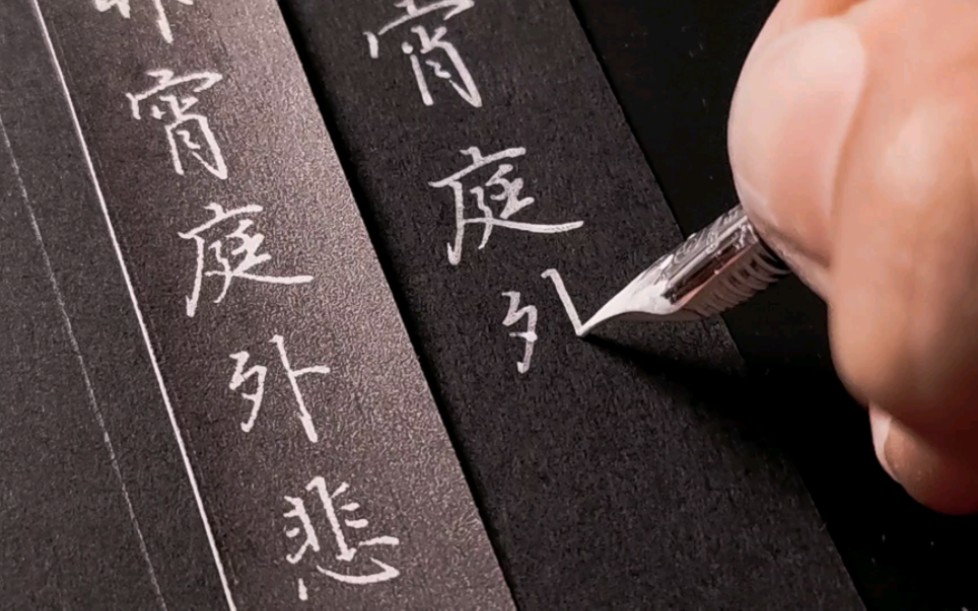 宵庭外
宵庭外悲